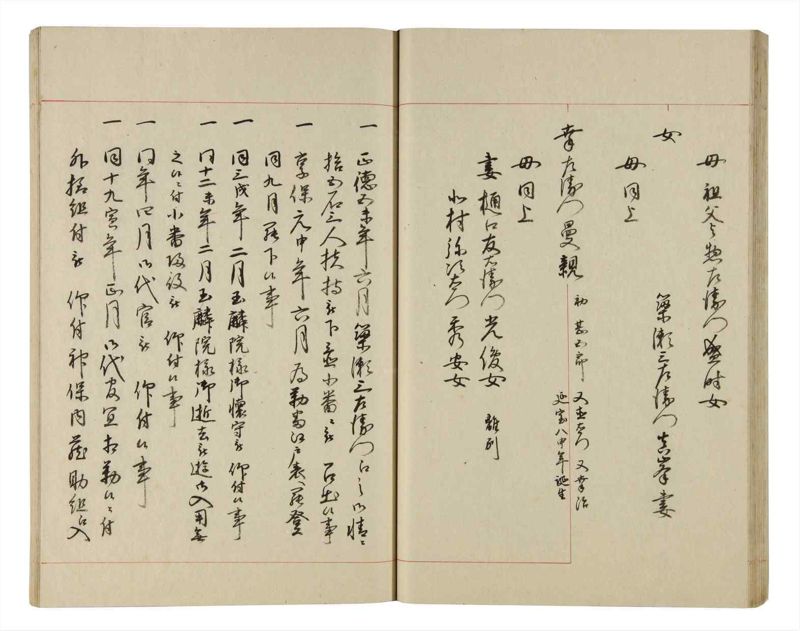 母祖父与惣左衛門盛時女
女　簗瀬三左衛門真峯妻
母同上
幸左衛門曼親　初甚五郎　又五左衛門　又幸治
延宝八申年誕生
母同上
妻樋口友右衛門光俊女　離別
北村弥次右衛門秀安女
一　正徳五未年六月簗瀬三左衛門
拾五石三人扶持被下置小番被召出候事
一　享保元申年六月為勤番江戸表罷登
同九月罷下候事
一　同三戌年二月玉麟院様御懐守被仰付候事
一　同十二未年二月玉麟院様御逝去被遊御入用無
之候ニ付小番被仰付候事
一　同年四月御代官被仰付候事
一　同十九寅年正月御代官宜相勤候ニ付
外格組付被仰付神保内蔵助組江入